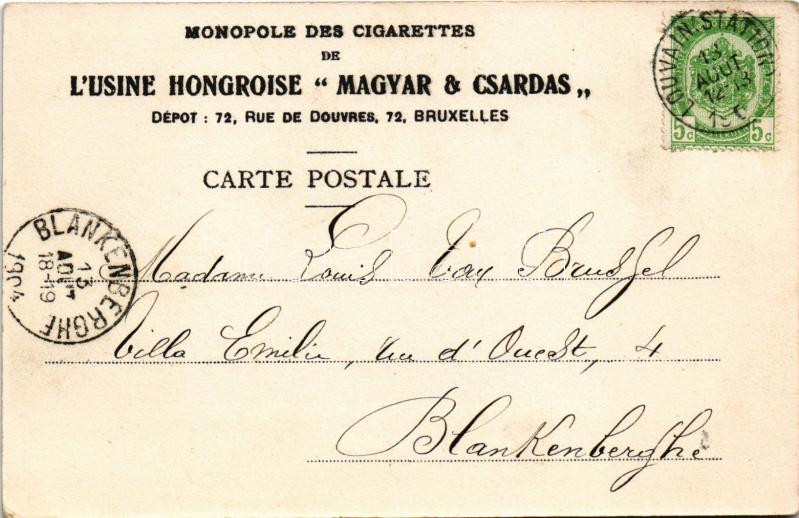 MONOPOLE DES CIGARETTES
DE
L'USINE HONGROISE “ MAGYAR & CSARDAS „
DÉPOT : 72, RUE DE DOUVRES, 72, BRUXELLES
CARTE POSTALE
LOUVAIN (STATION)
13
AOUT
12-13
190
5c 5c
BLANKENBERGHE
13
AOUT
18-19
1904
Madame Louis Van Brussel
Villa Emilie, rue d'Ouest, 4
Blankenberghe